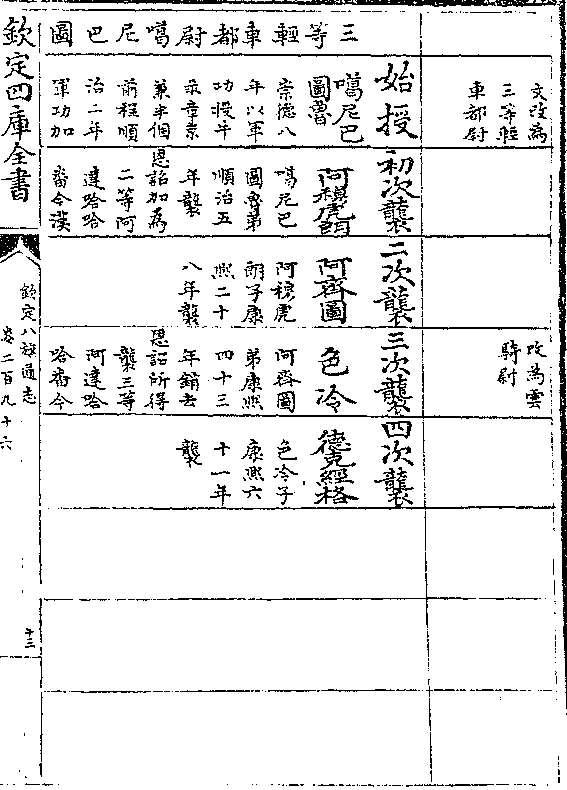 文改為
三等輕
車都尉
改為雲
騎尉
三等輕車都尉噶尼巴圖
始授
噶尼巴
圖魯
崇德八
年以軍
功授牛
彔章京
兼半個
前程順
治二年
軍功加
初次襲
阿穆虎朗
噶尼巴
圖魯弟
順治五
年襲
恩詔加為
二等阿
達哈哈
番今漢
二次襲
阿齊圖
阿穆虎
朗子康
熙二十
八年襲
三次襲
色冷
阿齊圖
弟康熙
四十三
年銷去
恩詔所得
襲三等
阿達哈
哈番今
四次襲
德克經格
色冷子
康熙六
十一年
襲
欽定四庫全書
欽定八旗通志
卷二百九十六
十三